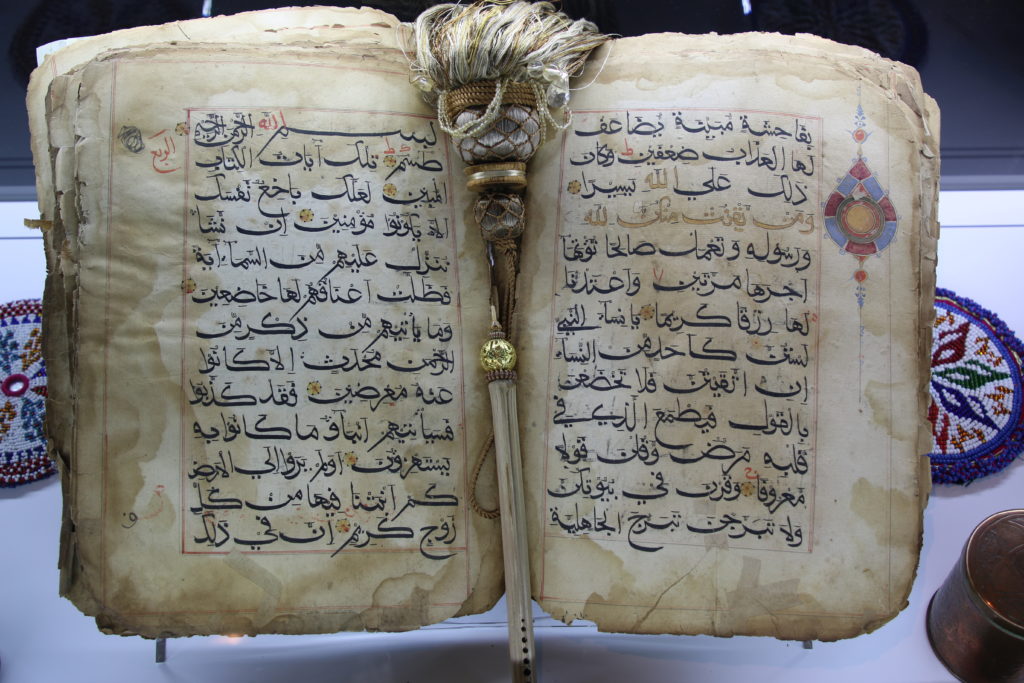 بفاحشة مبينة يضاعف
لها العذاب ضعفين وكان
ذلك علي الله يسيرا
ومن يقنت منكن لله
ورسوله وتعمل صالحا نؤتها
اجرها مرتين واعتدنا
لها رزقا كريما يا نساء النبي
لستن كاحد من النساء
ان اتقيتن فلا تخضعن
بالقول فيطمع الذي في
قلبه مرض وقلن قولا
معروفا وقرن في بيوتكن
ولا تبرجن تبرج الجاهلية
بسم الله الرحمن الرحيم
الربع
طسم تلك آيات الكتاب
المبين لعلك باخع نفسك
الا يكونوا مؤمنين ان نشأ
ننزل عليهم من السماء آية
فظلت اعناقهم لها خاضعين
وما يأتيهم من ذكر من
الرحمن محدث الا كانوا
عنه معرضين فقد كذبوا
فسيأتيهم انباؤا ما كانوا به
يستهزؤن اولم يروا الي الارض
كم انبتنا فيها من كل
زوج كريم ان في ذلك